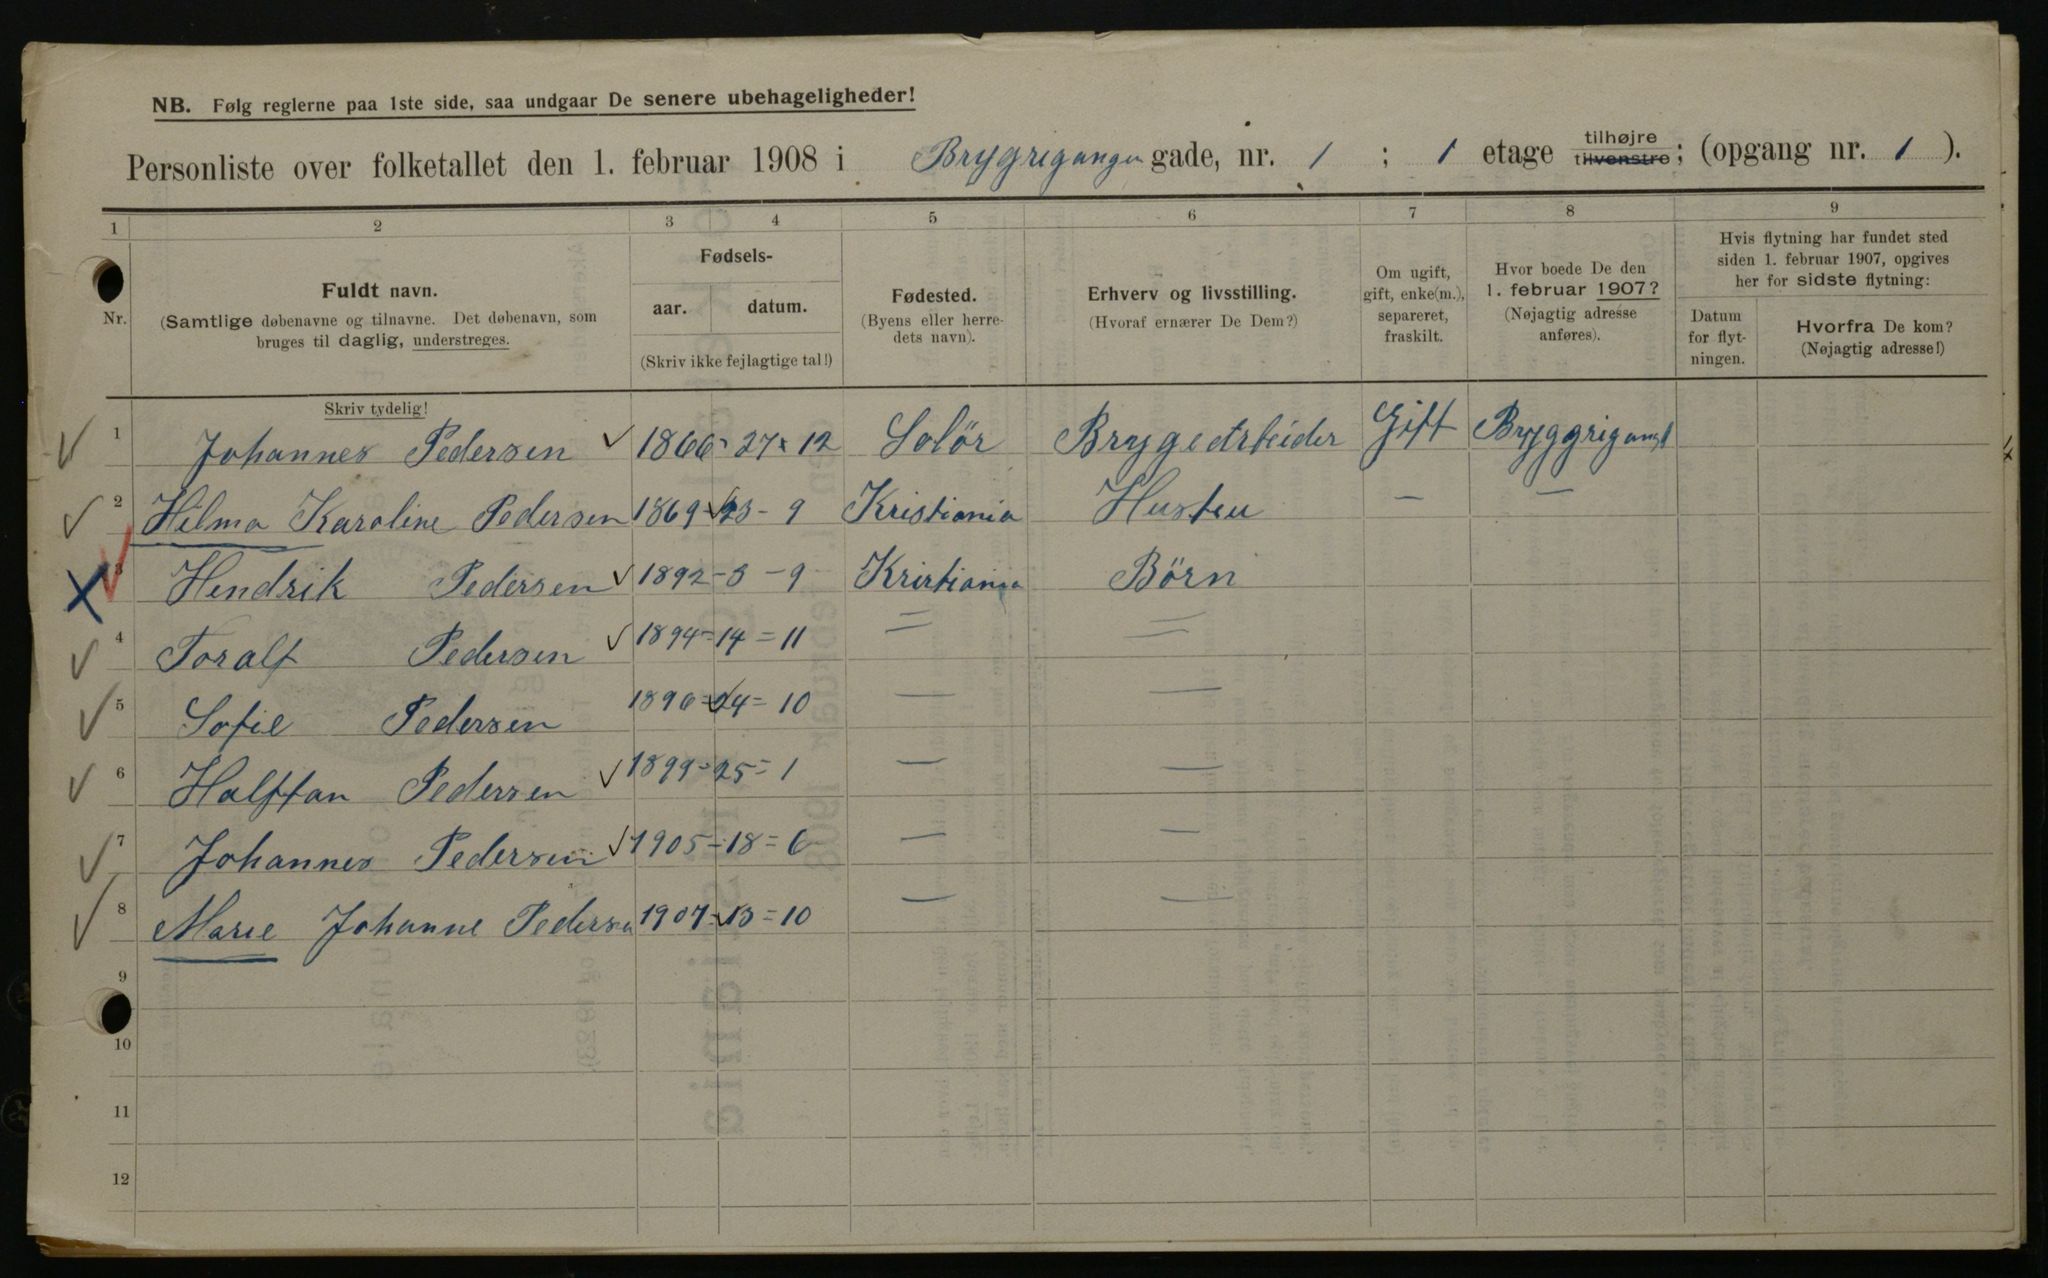 NB. Følg reglerne paa 1ste side, saa undgaar De senere ubehageligheder!
Personliste over folketallet den 1. februar 1908 i Bryggrigangen gade, nr. 1 ; 1 etage tilhøjre tilvenstre; (opgang nr. 1 ).
1 2 3 4 5 6 7 8 9
Nr.
Fuldt navn.
(Samtlige døbenavne og tilnavne. Det døbenavn, som
bruges til daglig, understreges.
Skriv tydelig!
Fødsels-
aar. datum.
(Skriv ikke fejlagtige tal!)
Fødested.
(Byens eller herre-
dets navn).
Erhverv og livsstilling.
(Hvoraf ernærer De Dem?)
Om ugift,
gift, enke(m.),
separeret,
fraskilt.
Hvor boede De den
1. februar 1907?
(Nøjagtig adresse
anføres).
Hvis flytning har fundet sted
siden 1. februar 1907, opgives
her for sidste flytning:
Datum
for flyt-
ningen.
Hvorfra De kom?
(Nøjagtig adresse!)
1 Johannes Pedersen 1866 - 27 - 12 Solör Bryggearbeider Gift Bryggrigang 1
2 Hilma Karoline Pedersen 1869 - 23 - 9 Kristiania Hustru — —
3 Hendrik Pedersen 1892 - 3 - 9 Kristiania Börn
4 Toralf Pedersen 1894 = 14 = 11 = =
5 Sofie Pedersen 1896 = 24 = 10 — —
6 Halftan Pedersen 1899 = 25 = 1 — —
7 Johannes Pedersen 1905 = 18 = 6 — —
8 Marie Johanne Pedersen 1907 = 13 = 10 — —
9
10
11
12